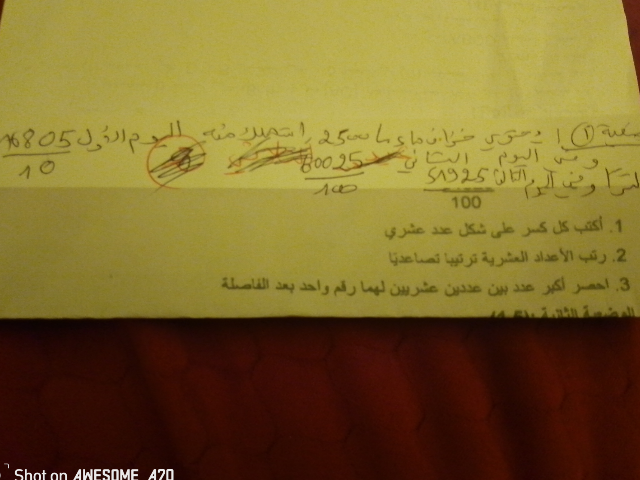 يحتوي خزان ماء على 2500 استهلك منه اليوم الأول 16805/10
وفي اليوم الثاني 60025/100
لترا وفي اليوم الثالث 51925/100
1. أكتب كل كسر على شكل عدد عشري
2. رتب الأعداد العشرية ترتيبا تصاعديا
3. احصر أكبر عدد بين عددين عشريين لهما رقم واحد بعد الفاصلة
الوضعية الثانية
Shot on AWESOME A70